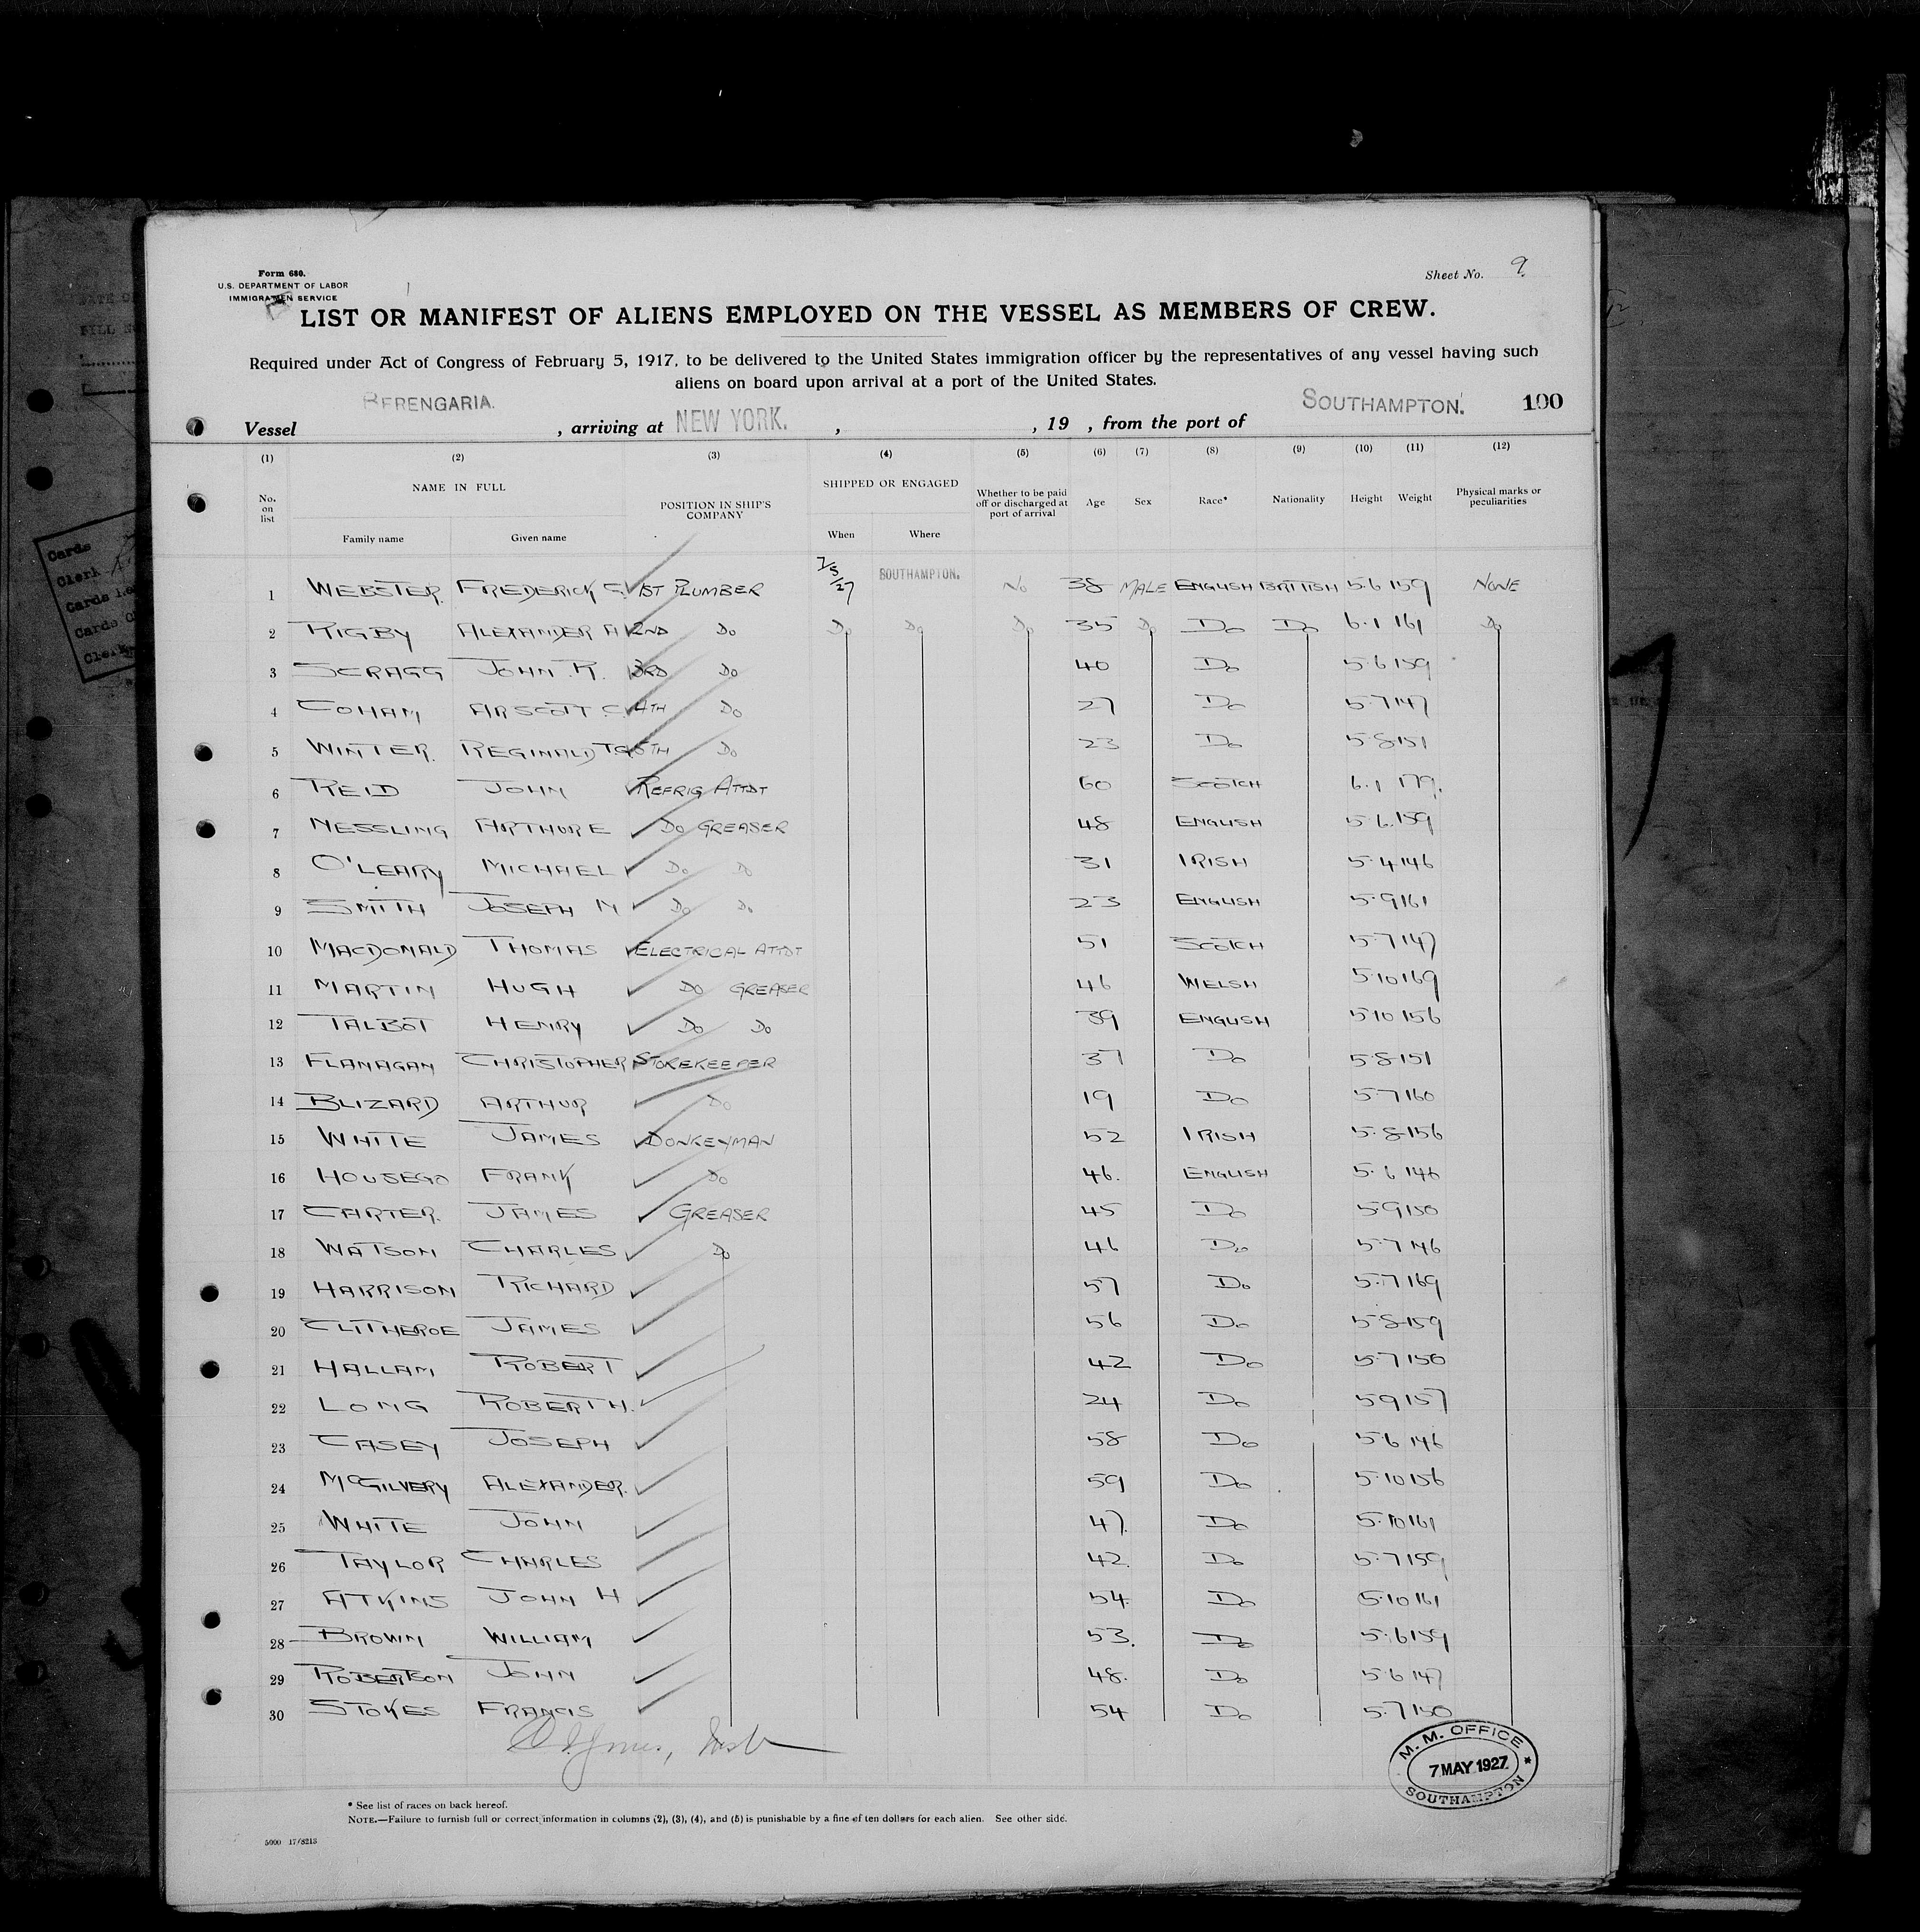 Form 680.
U.S. DEPARTMENT OF LABOR
IMMIGRATION SERVICE
Sheet No. 9
LIST OR MANIFEST OF ALIENS EMPLOYED ON THE VESSEL AS MEMBERS OF CREW.
Required under Act of Congress of February 5, 1917, to be delivered to the United States immigration officer by the representatives of any vessel having such
aliens on board upon arrival at a port of the United States.
Vessel BERENGARIA. , arriving at NEW YORK. , , 19 , from the port of SOUTHAMPTON. 100
(1) (2) (3) (4) (5) (6) (7) (8) (9) (10) (11) (12)
No. on list NAME IN FULL Family name Given name POSITION IN SHIP'S COMPANY SHIPPED OR ENGAGED When Where Whether to be paid off or discharged at port of arrival Age Sex Race* Nationality Height Weight Physical marks or peculiarities
1 WEBSTER. FREDERICK C. 1ST PLUMBER 7/5/27 SOUTHAMPTON. No 38 MALE ENGLISH BRITISH 5.6 159 NONE
2 RIGBY ALEXANDER A 2ND Do Do Do Do 35 Do Do Do 6.1 161 Do
3 SCRAGG JOHN R. 3RD Do 40 Do 5.6 159
4 COHAM ARSCOTT C. 4TH Do 27 Do 5.7 147
5 WINTER. REGINALD T.G 5TH Do 23 Do 5.8 151
6 REID JOHN REFRIG ATTDT 60 SCOTCH 6.1 179.
7 NESSLING ARTHUR E Do GREASER 48 ENGLISH 5.6.159
8 O'LEARY MICHAEL Do Do 31 IRISH 5.4 146
9 SMITH JOSEPH M Do Do 23 ENGLISH 5.9 161
10 MACDONALD THOMAS ELECTRICAL ATTDT 51 SCOTCH 5.7 147
11 MARTIN HUGH Do GREASER 46 WELSH 5.10 169
12 TALBOT HENRY Do Do 39 ENGLISH 5.10 156
13 FLANAGAN CHRISTOPHER STOREKEEPER 37 Do 5.8 151
14 BLIZARD ARTHUR Do 19 Do 5.7 160
15 WHITE JAMES DONKEYMAN 52 IRISH 5.8 156
16 HOUSEGO FRANK Do 46. ENGLISH 5.6 146
17 CARTER. JAMES GREASER 45 Do 5.9 150
18 WATSON CHARLES Do 46 Do 5.7 146
19 HARRISON RICHARD 57 Do 5.7 169
20 CLITHEROE JAMES 56 Do 5.8 159
21 HALLAM ROBERT 42 Do 5.7 150
22 LONG ROBERT H. 24 Do 5.9 157
23 CASEY JOSEPH 58 Do 5.6 146
24 McGILVERY ALEXANDER. 59 Do 5.10 156
25 WHITE JOHN 47. Do 5.10 161
26 TAYLOR CHARLES 42. Do 5.7 159
27 ATKINS JOHN H 54. Do 5.10 161
28 BROWN WILLIAM 53. Do 5.6 159
29 ROBERTSON JOHN 48. Do 5.6 147
30 STOKES FRANCIS 54 Do 5.7 150
M. M. OFFICE
7 MAY 1927
SOUTHAMPTON
* See list of races on back hereof.
NOTE.—Failure to furnish full or correct information in columns (2), (3), (4), and (5) is punishable by a fine of ten dollars for each alien. See other side.
5000 17/8213